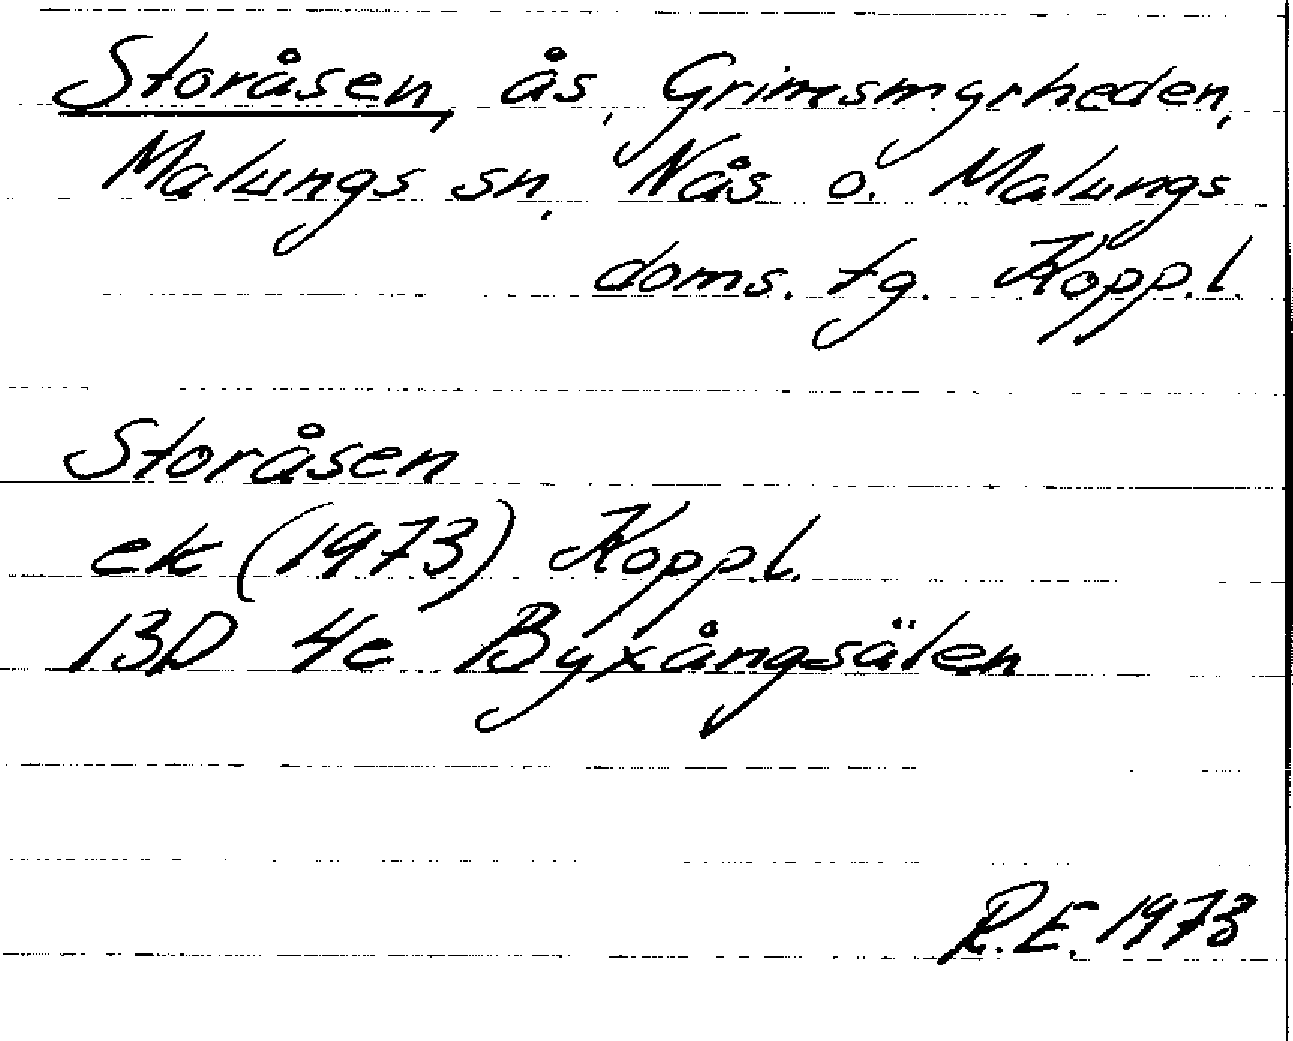 Storåsen, ås, Grimsmyrheden,
Malungs sn, Nås o. Malungs
doms. tg. Kopp.l.
Storåsen
ek (1973) Kopp.l.
13D 4e Byxångsälen
R.E. 1973